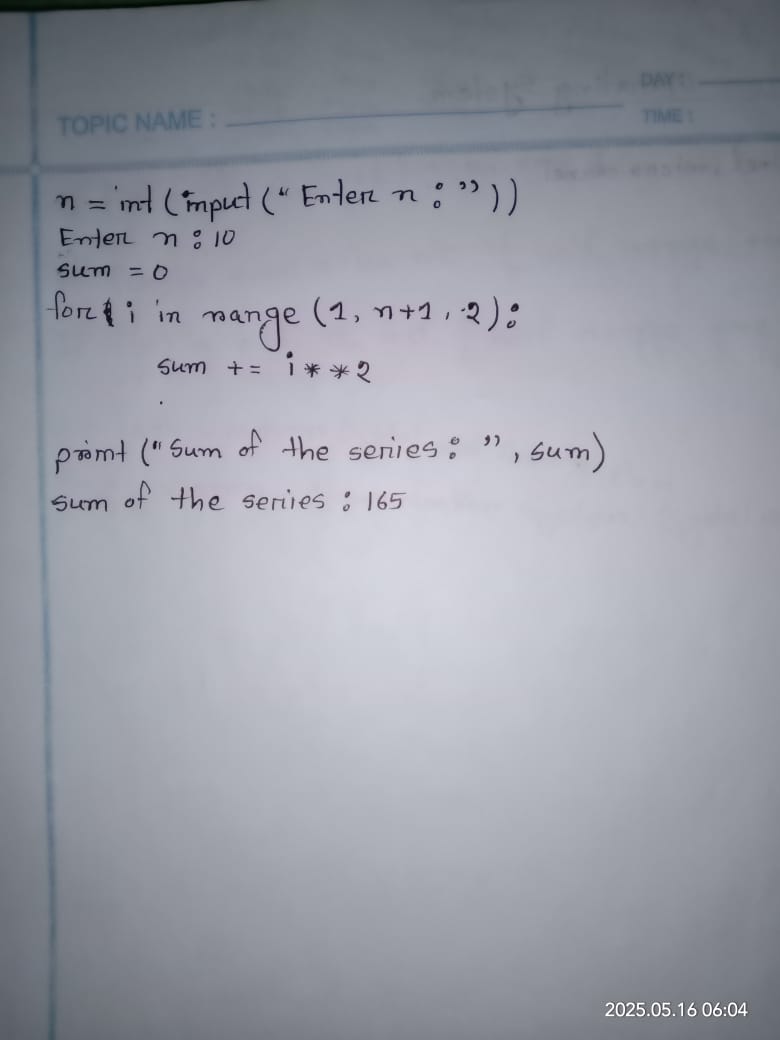 DAY :
TOPIC NAME :
TIME :
n = int (input (“ Enter n : ”))
Enter n : 10
sum = 0
for i in range (1, n+1, 2):
sum += i**2
print (“Sum of the series : ”, sum)
sum of the series : 165
2025.05.16 06:04